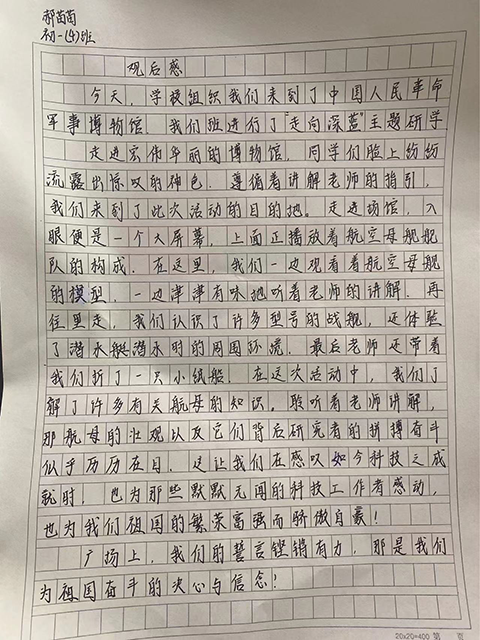 郝苗苗
初一(4)班
观后感
今天，学校组织我们来到了中国人民革命
军事博物馆．我们班进行了"走向深蓝"主题研学
走进宏伟华丽的博物馆，同学们脸上纷纷
流露出惊叹的神色．遵循着讲解老师的指引，
我们来到了此次活动的目的地。走进场馆，入
眼便是一个大屏幕，上面正播放着航空母舰舰
队的构成．在这里，我们一边观看着航空母舰
的模型，一边津津有味地听着老师的讲解．再
往里走，我们认识了许多型号的战舰，还体验
了潜水艇潜水时的周围环境．最后老师还带着
我们折了一只小纸船．在这次活动中，我们了
解了许多有关航母的知识。聆听着老师讲解，
那航母的壮观以及它们背后研究者的拼搏奋斗
似乎历历在目．这让我们在感叹如今科技之成
就时，也为那些默默无闻的科技工作者感动，
也为我们祖国的繁荣富强而骄傲自豪！
广场上，我们的誓言铿锵有力，那是我们
为祖国奋斗的决心与信念！
20×20=400 第 页